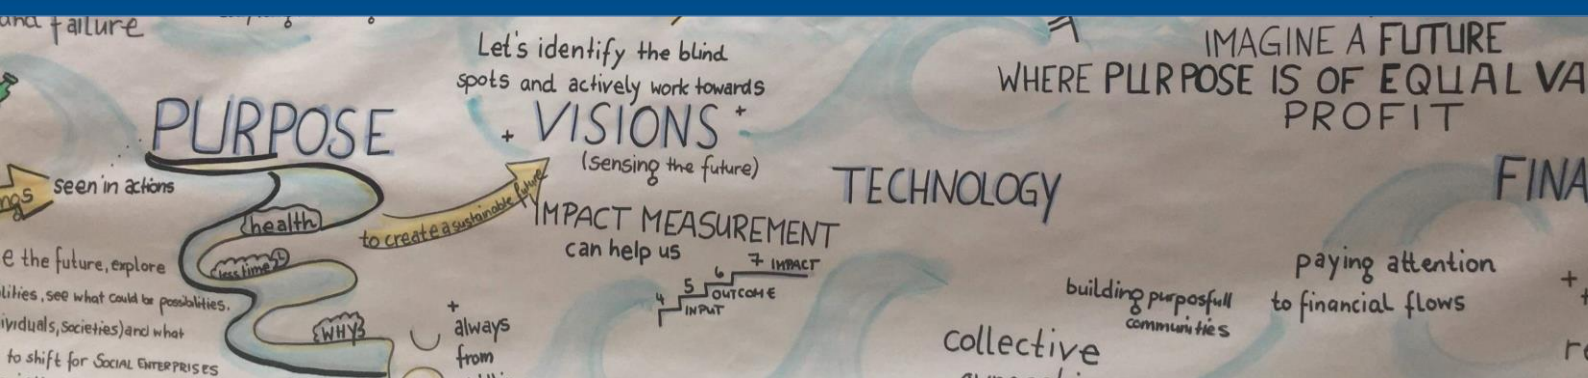 and failure
PURPOSE
seen in actions
ngs
health
less time
WHY?
e the future, explore
lities, see what could be possibilities.
ividuals, societies) and what
to shift for SOCIAL ENTERPRISES
to create a sustainable future
Let's identify the blind
spots and actively work towards
+ VISIONS +
(sensing the future)
IMPACT MEASUREMENT
can help us
4
INPUT
5
OUTCOME
6
7 IMPACT
+
always
from
TECHNOLOGY
IMAGINE A FUTURE
WHERE PURPOSE IS OF EQUAL VA
PROFIT
FINA
paying attention
to financial flows
building purposfull
communities
collective
+